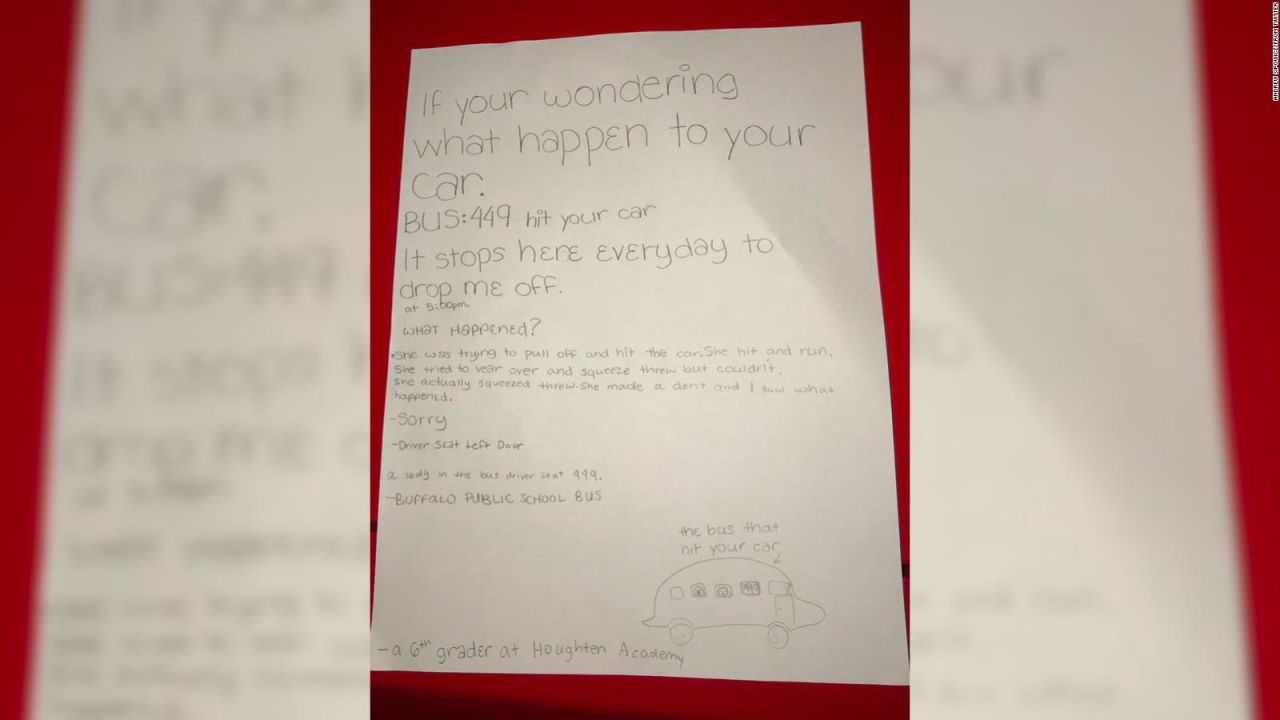 If your wondering
what happen to your
car.
BUS:449 hit your car
It stops here everyday to
drop me off.
at 5:00pm.
WHAT HAPPENED?
•She was trying to pull off and hit the car.She hit and run.
She tried to vear over and squeeze threw but couldn't.
She actually squeezed threw.She made a dent and I saw what
happened.
-Sorry
-Driver Seat Left Door
a lady in the bus driver seat 449.
-BUFFALO PUBLIC SCHOOL BUS
the bus that
hit your car
449
-a 6th grader at Houghten Academy
ANDREW SIPOWICZ/FROM TWITTER